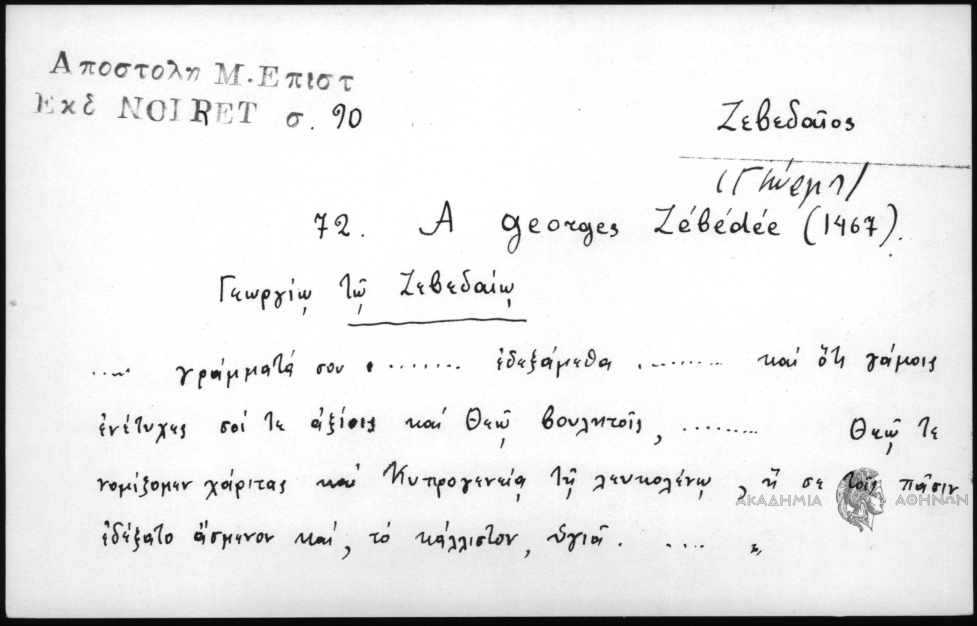 Αποστολη Μ. Επιστ
Εκδ NOIRET σ. 90
Ζεβεδαῖος
72. A Georges Zébédée (1467).
Γεωργίῳ τῷ Ζεβεδαίῳ
..... γράμματά σου ........ ἐδεξάμεθα ......... καί ὅτι γάμοις
ἐνέτυχες σοί τε ἀξίοις καί Θεῷ βουλητοῖς, ......... Θεῷ τε
νομίζομεν χάριτας καί Κυπρογενείᾳ τῇ λευκολένῳ, ἥ σε τοῖς πᾶσιν
ΑΚΑΔΗΜΙΑ ΑΘΗΝΩΝ
ἐδέξατο ἄσμενον καί, τό κάλλιστον, ὑγιᾶ. ....